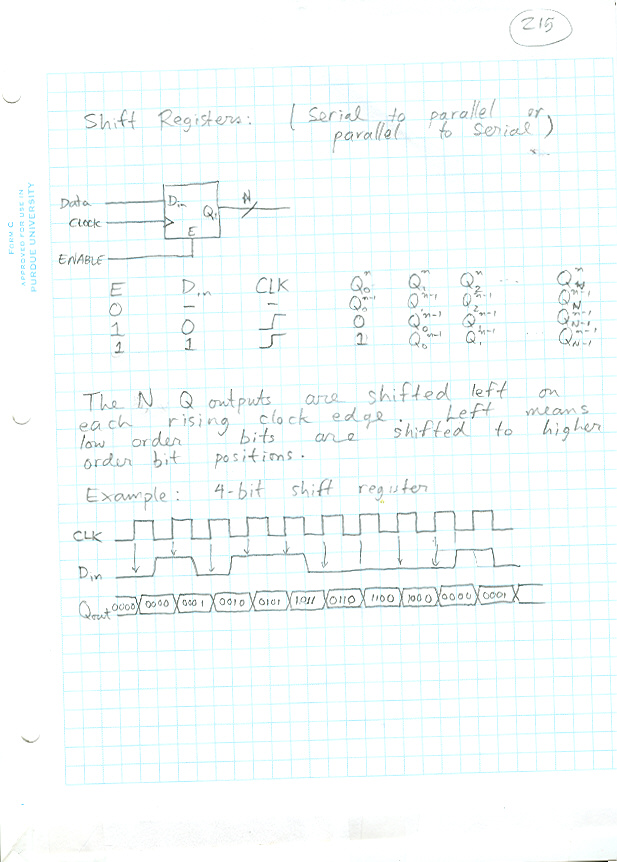 215
Shift Registers: (Serial to parallel or
parallel to Serial)
FORM C
APPROVED FOR USE IN
PURDUE UNIVERSITY
Data
Clock
ENABLE
Din
Qi
E
N
E Din CLK Q₀ⁿ Q₁ⁿ Q₂ⁿ ... Q_Nⁿ
0 – – Q₀ⁿ⁻¹ Q₁ⁿ⁻¹ Q₂ⁿ⁻¹ Q_Nⁿ⁻¹
1 0 0 Q₀ⁿ⁻¹ Q₂ⁿ⁻¹ ... Q_N-1ⁿ⁻¹
1 1 1 Q₀ⁿ⁻¹ Q₁ⁿ⁻¹ ... Q_N-1ⁿ⁻¹
The N Q outputs are shifted left on
each rising clock edge. Left means
low order bits are shifted to higher
order bit positions.
Example: 4-bit shift register
CLK
Din
Qout 0000 0000 0001 0010 0101 1011 0110 1100 1000 0000 0001